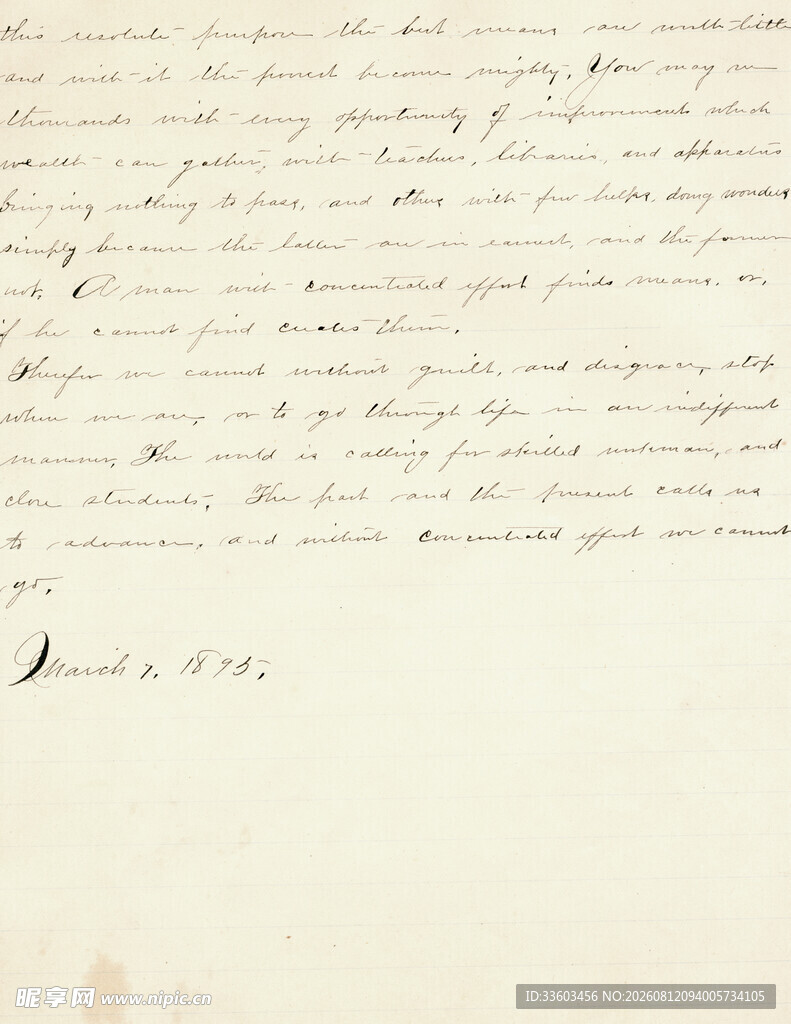 this resolute purpose the best means are worth little
and with it the poorest become mighty. You may see
thousands with every opportunity of improvements which
wealth can gather, with teachers, libraries, and apparatus
bringing nothing to pass, and others with few helps, doing wonders
simply because the latter are in earnest, and the former
not. A man with concentrated effort finds means, or,
if he cannot find creates them.
Therefor we cannot without guilt, and disgrace, stop
where we are, or to go through life in an indifferent
manner. The world is calling for skilled workman, and
close students. The past and the present calls us
to advance, and without concentrated effort we cannot
go.
March 7, 1895.
昵享网 www.nipic.cn
ID:33603456 NO:20260812094005734105